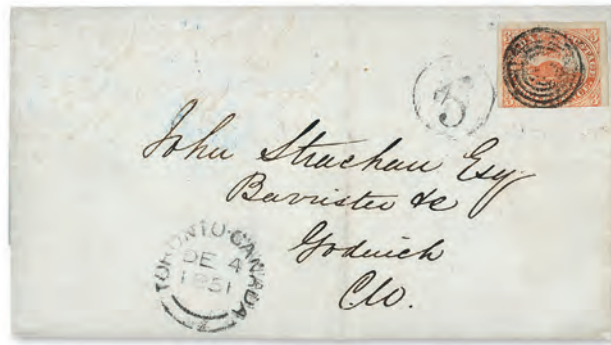 3
John Strachan Esq
Barrister &c
Goderich
C.W.
TORONTO·CANADA
DE 4
1851